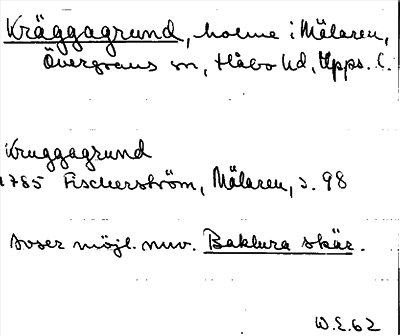 Kräggagrund, holme i Mälaren,
Övergrans sn, Håbo hd, Upps. l.
Kruggagrund
1785 Fischerström, Mälaren, s. 98
avser möjl. nuv. Baklura skär.
W.E. 62